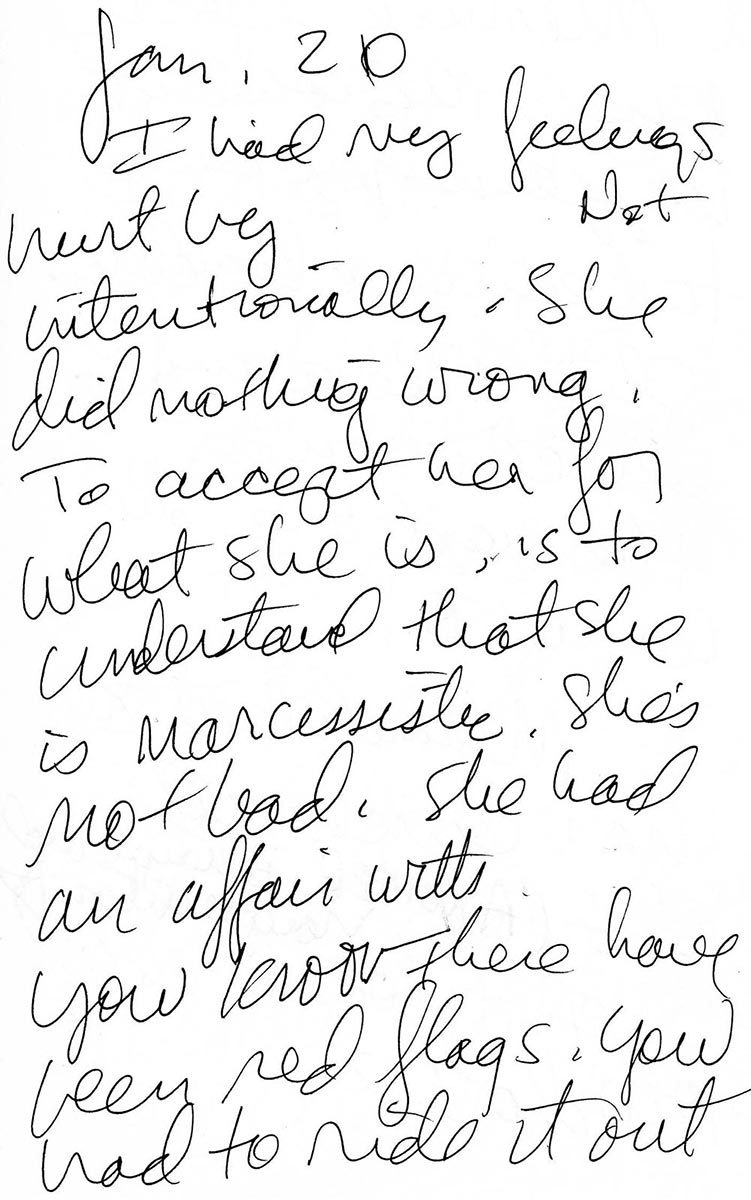 Jan. 20
I had my feelings
hurt by Not
intentionally. She
did nothing wrong.
To accept her for
what she is, is to
understand that she
is narcessistic. She's
not bad. She had
an affair with
you know there have
been red flags. You
had to ride it out